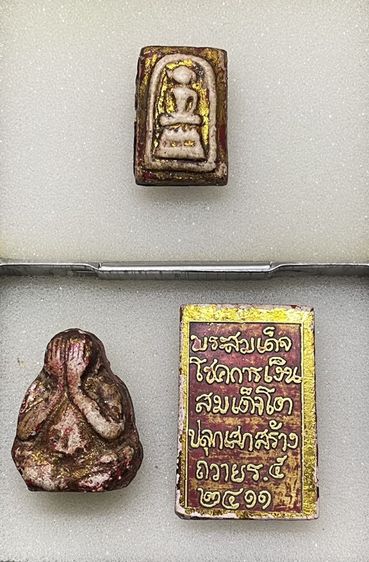 พระสมเด็จ
โชคการเงิน
สมเด็จโต
ปลุกเสกสร้าง
ถวายร.๕
๒๔๑๑